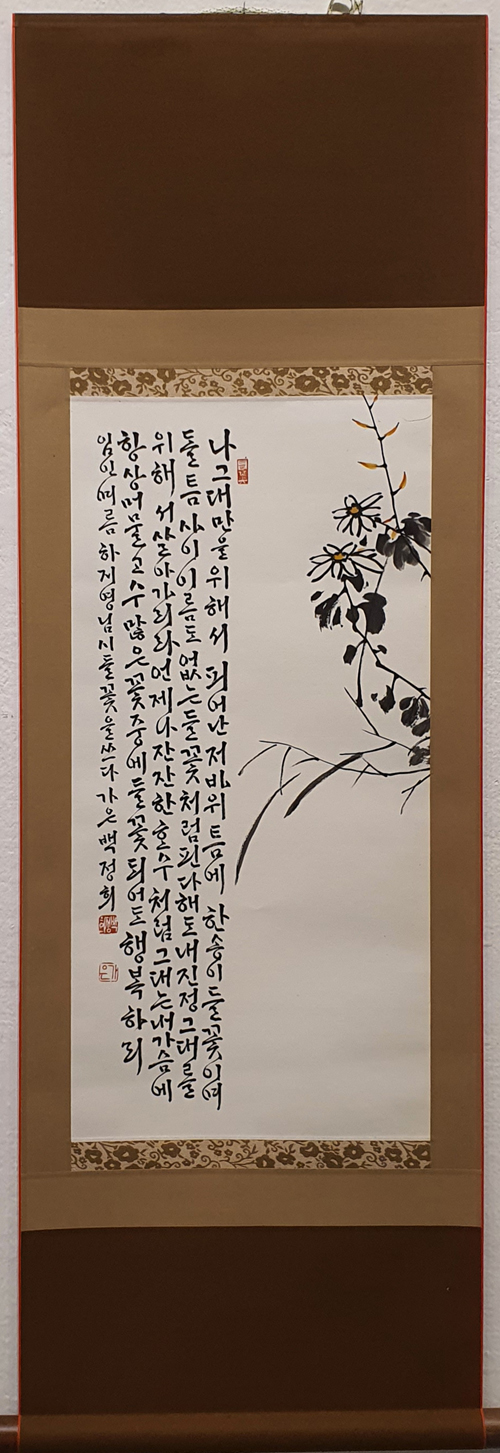 나 그대만을 위해서 피어난 저 바위틈에 한송이 들꽃이며
돌틈 사이 이름도 없는 들꽃처럼 핀다해도 내 진정 그대를
위해 서 살아가리라 언제나 잔잔한 호수처럼 그대는 내 가슴에
항상 머물고 수많은 꽃중에 들꽃 되어도 행복하리
임인 여름 하지영님 시 들꽃을 쓰다 가은 백정희
가은